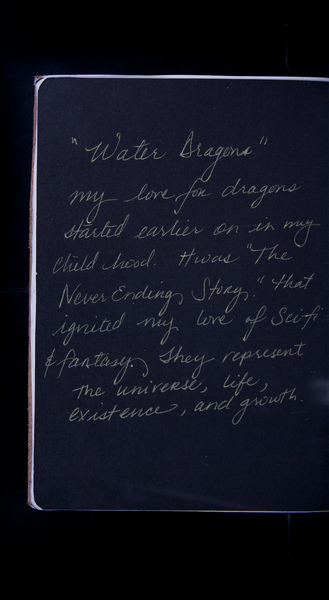 "Water Dragons"
my love for dragons
started earlier on in my
Child hood. It was "The
Never Ending Story." that
ignited my love of Sci-fi
& fantasy. They represent
the universe, life,
existence, and growth.